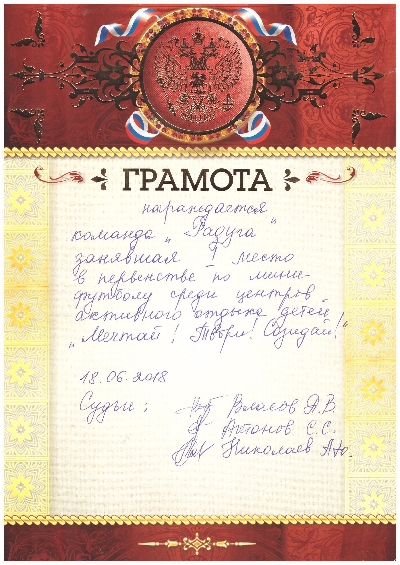 ГРАМОТА
награждается
команда „Радуга"
занявшая I место
в первенстве по мини-
футболу среди центров
активного отдыха детей
„Мечтай! Твори! Созидай!"
18.06.2018
Судьи: Власов А.В.
Антонов С.С.
Николаев А.Ю.